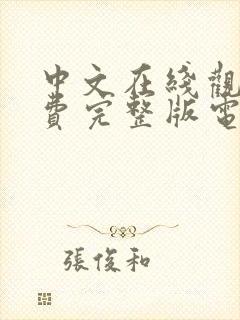 中文在綫觀
費完整版電
張俊和